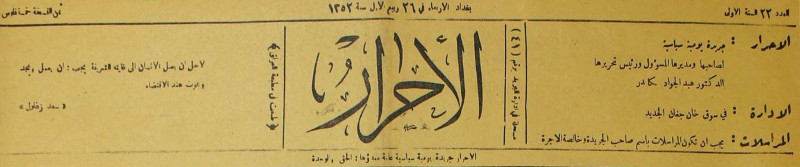 العدد ٢٣ السنة الاولى
بغداد الاربعاء في ٢٦ ربيع الاول سنة ١٣٥٢
ثمن النسخة خمسة فلوس
الاحرار : جريدة يومية سياسية
لصاحبها ومديرها المسؤول ورئيس تحريرها
الدكتور عبد الجواد
الادارة : في سوق خان جغان الجديد
المراسلات : يجب ان تكون المراسلات باسم صاحب الجريدة وخالصة الاجرة
مسجلة في ادارة البريد برقم (٤١)
الأحرار
طبعت في مطبعة العراق
لاجل ان يصل الانسان الى غايته الشريفة يجب : ان يعمل ويجد
ويموت عند الاقتضاء
« سعد زغلول »
الاحرار جريدة يومية سياسية عامة مبدؤها : الحق والوحدة